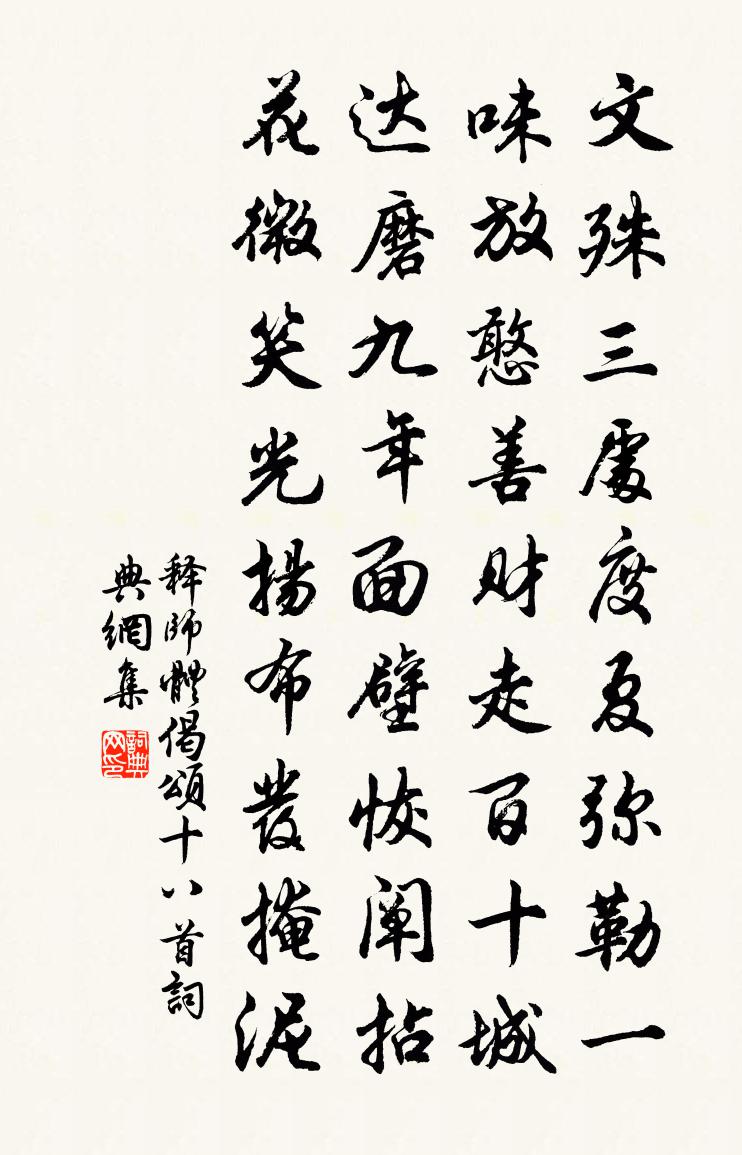 文殊三處度夏弥勒一
味放憨善财走百十城
达磨九年面壁恢阐拈
花微笑光揚布發掩泥
释師體偈頌十八首詞
典網集
詞典
网印